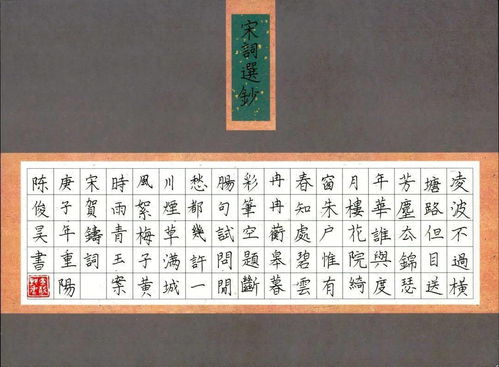 宋詞選鈔
凌波不過橫
塘路但目送
芳塵去錦瑟
年華誰與度
月樓花院綺
窗朱户惟有
春知處碧雲
冉冉蘅皋暮
彩筆空題斷
腸句試問閒
愁都幾許一
川煙草滿城
風絮梅子黃
時雨青玉案
宋賀鑄詞
庚子年重陽
陈俊昊書